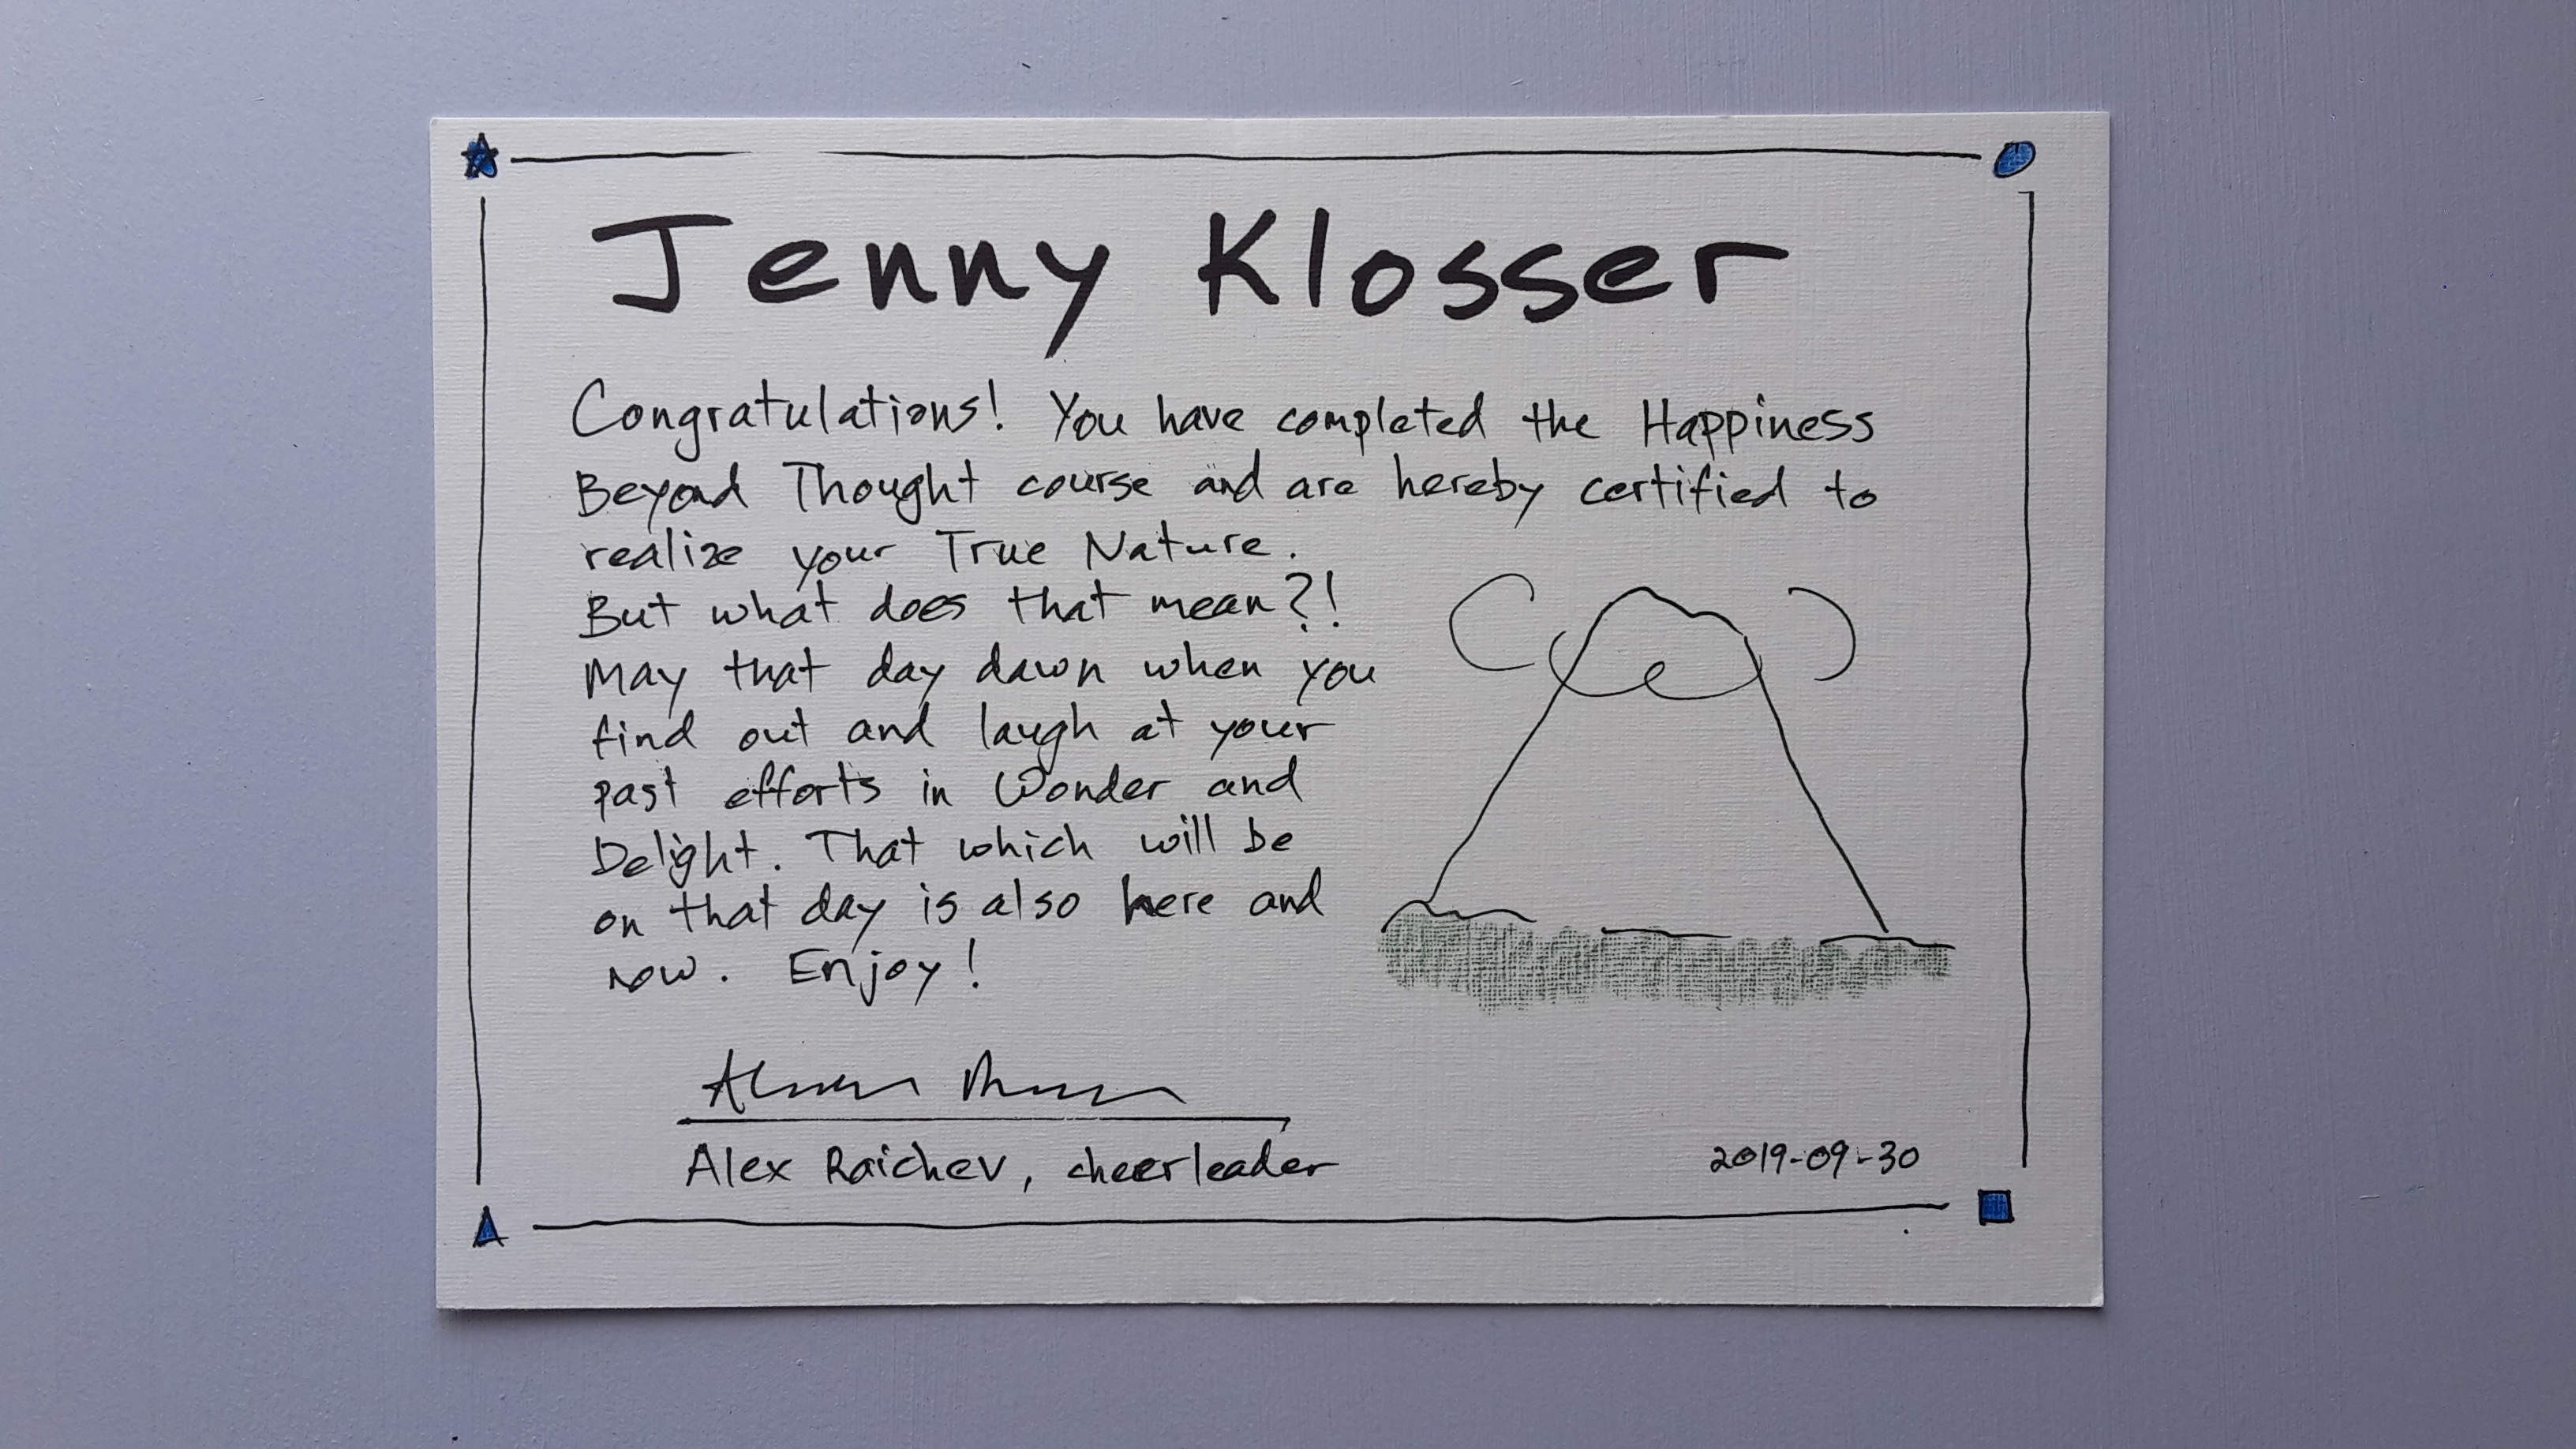 Jenny Klosser
Congratulations! You have completed the Happiness
Beyond Thought course and are hereby certified to
realize your True Nature.
But what does that mean?!
May that day dawn when you
find out and laugh at your
past efforts in Wonder and
Delight. That which will be
on that day is also here and
now. Enjoy!
Alex Raichev, cheerleader
2019-09-30